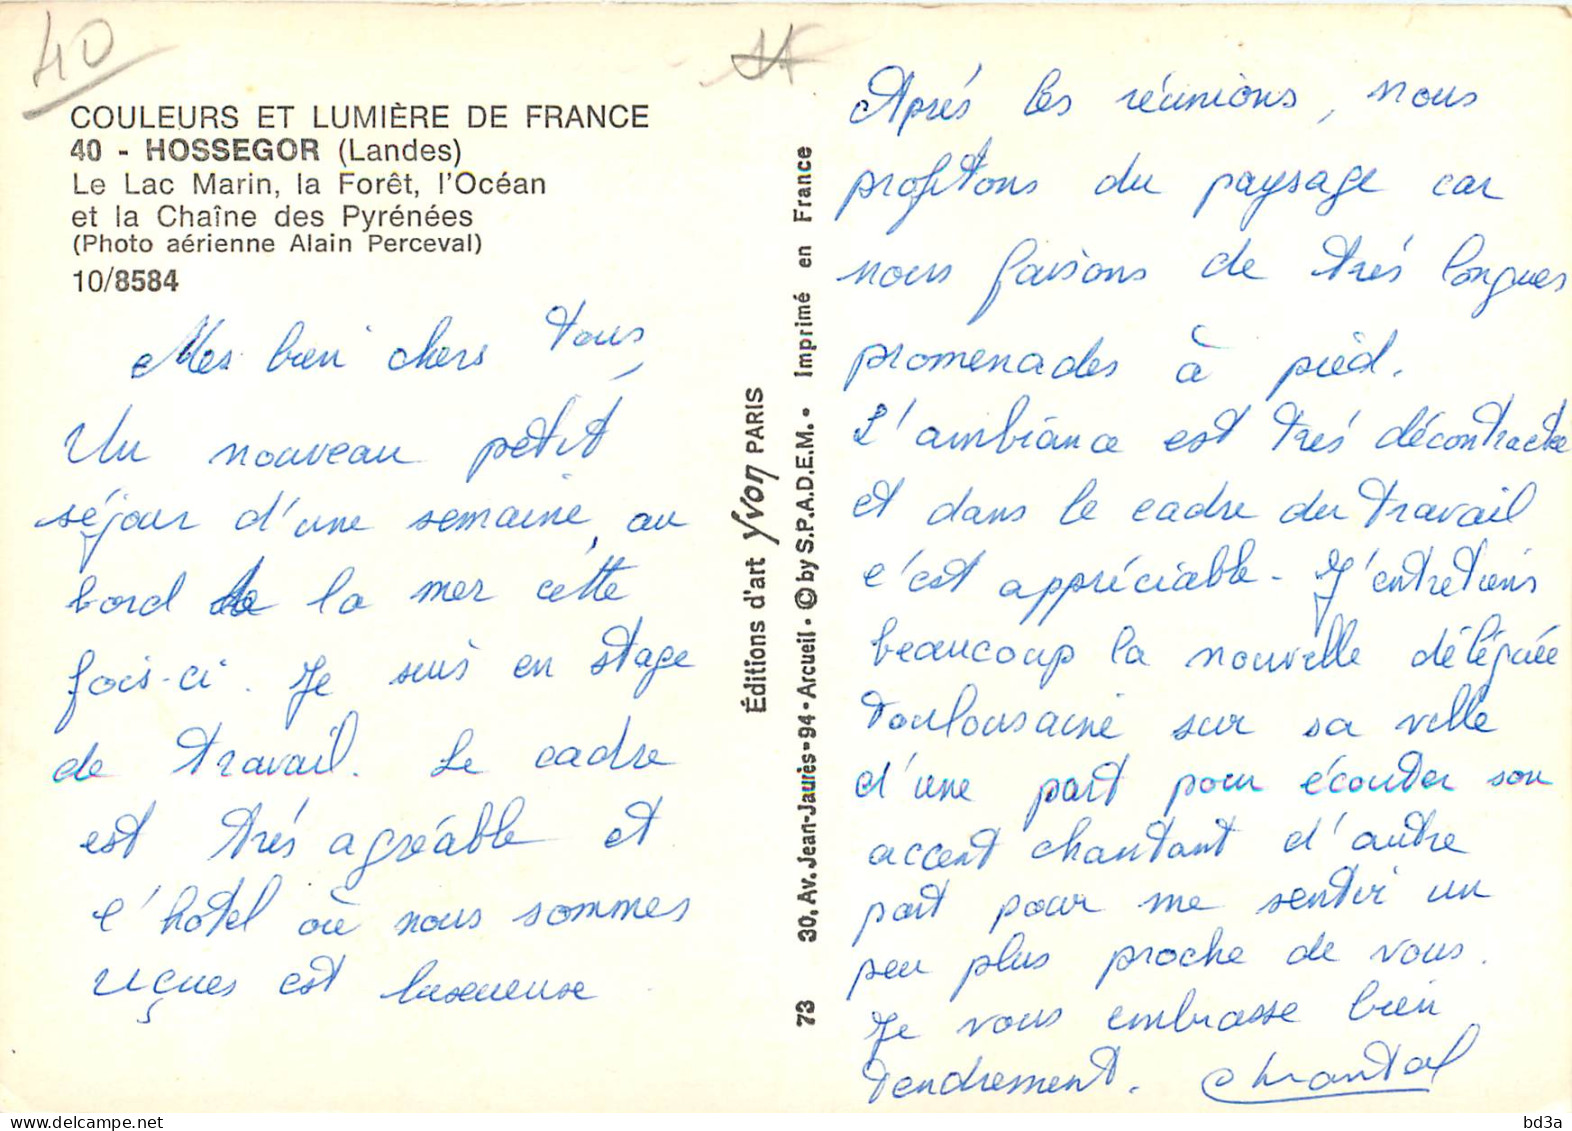 40
COULEURS ET LUMIÈRE DE FRANCE
40 - HOSSEGOR (Landes)
Le Lac Marin, la Forêt, l'Océan
et la Chaîne des Pyrénées
(Photo aérienne Alain Perceval)
10/8584
Mes bien chers tous,
Un nouveau petit
séjour d'une semaine, au
bord de la mer cette
fois-ci. Je suis en stage
de travail. Le cadre
est trés agréable et
l'hôtel où nous sommes
reçues est luxueuse
Éditions d'art Yvon PARIS
73 30, Av. Jean-Jaurès-94-Arcueil • © by S.P.A.D.E.M. • Imprimé en France
Aprés les réunions, nous
profitons du paysage car
nous faisons de trés longues
promenades à pied.
L'ambiance est trés décontractée
et dans le cadre du travail
c'est appréciable - J'entretiens
beaucoup la nouvelle déléguée
toulousaine sur sa ville
d'une part pour écouter son
accent chantant d'autre
part pour me sentir un
peu plus proche de vous.
Je vous embrasse bien
tendrement. Chantal
bd3a